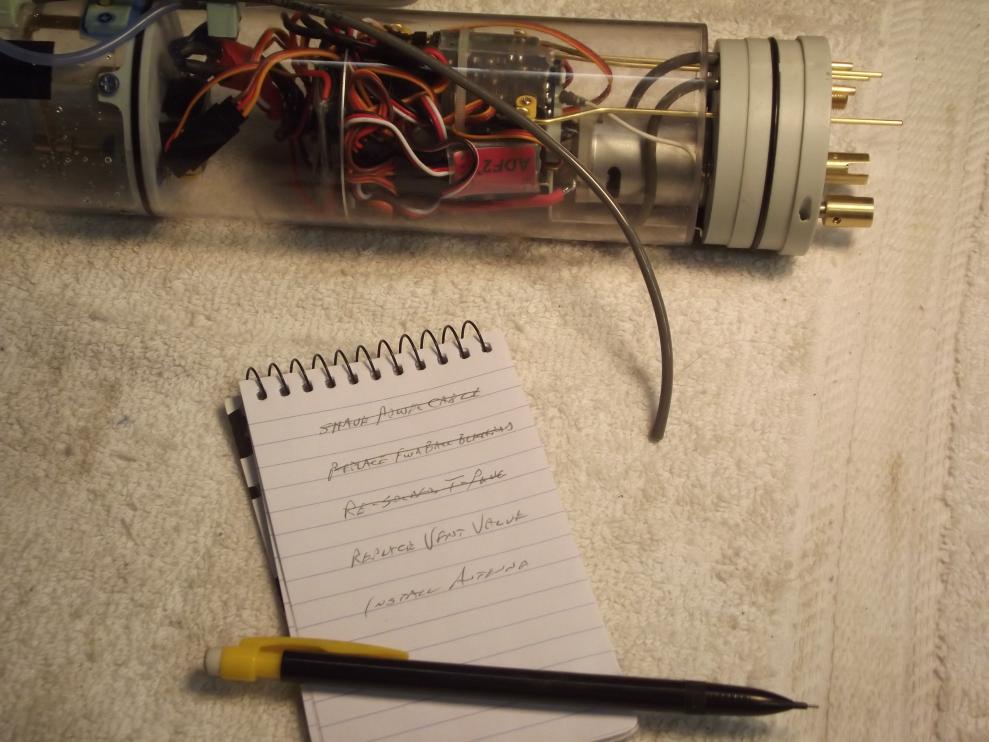 ADF2
SHAVE POWER CABLE
REPLACE FWD BALL BEARINGS
RE-SOLDER T-PLUG
REPLACE VENT VALVE
INSTALL ANTENNA